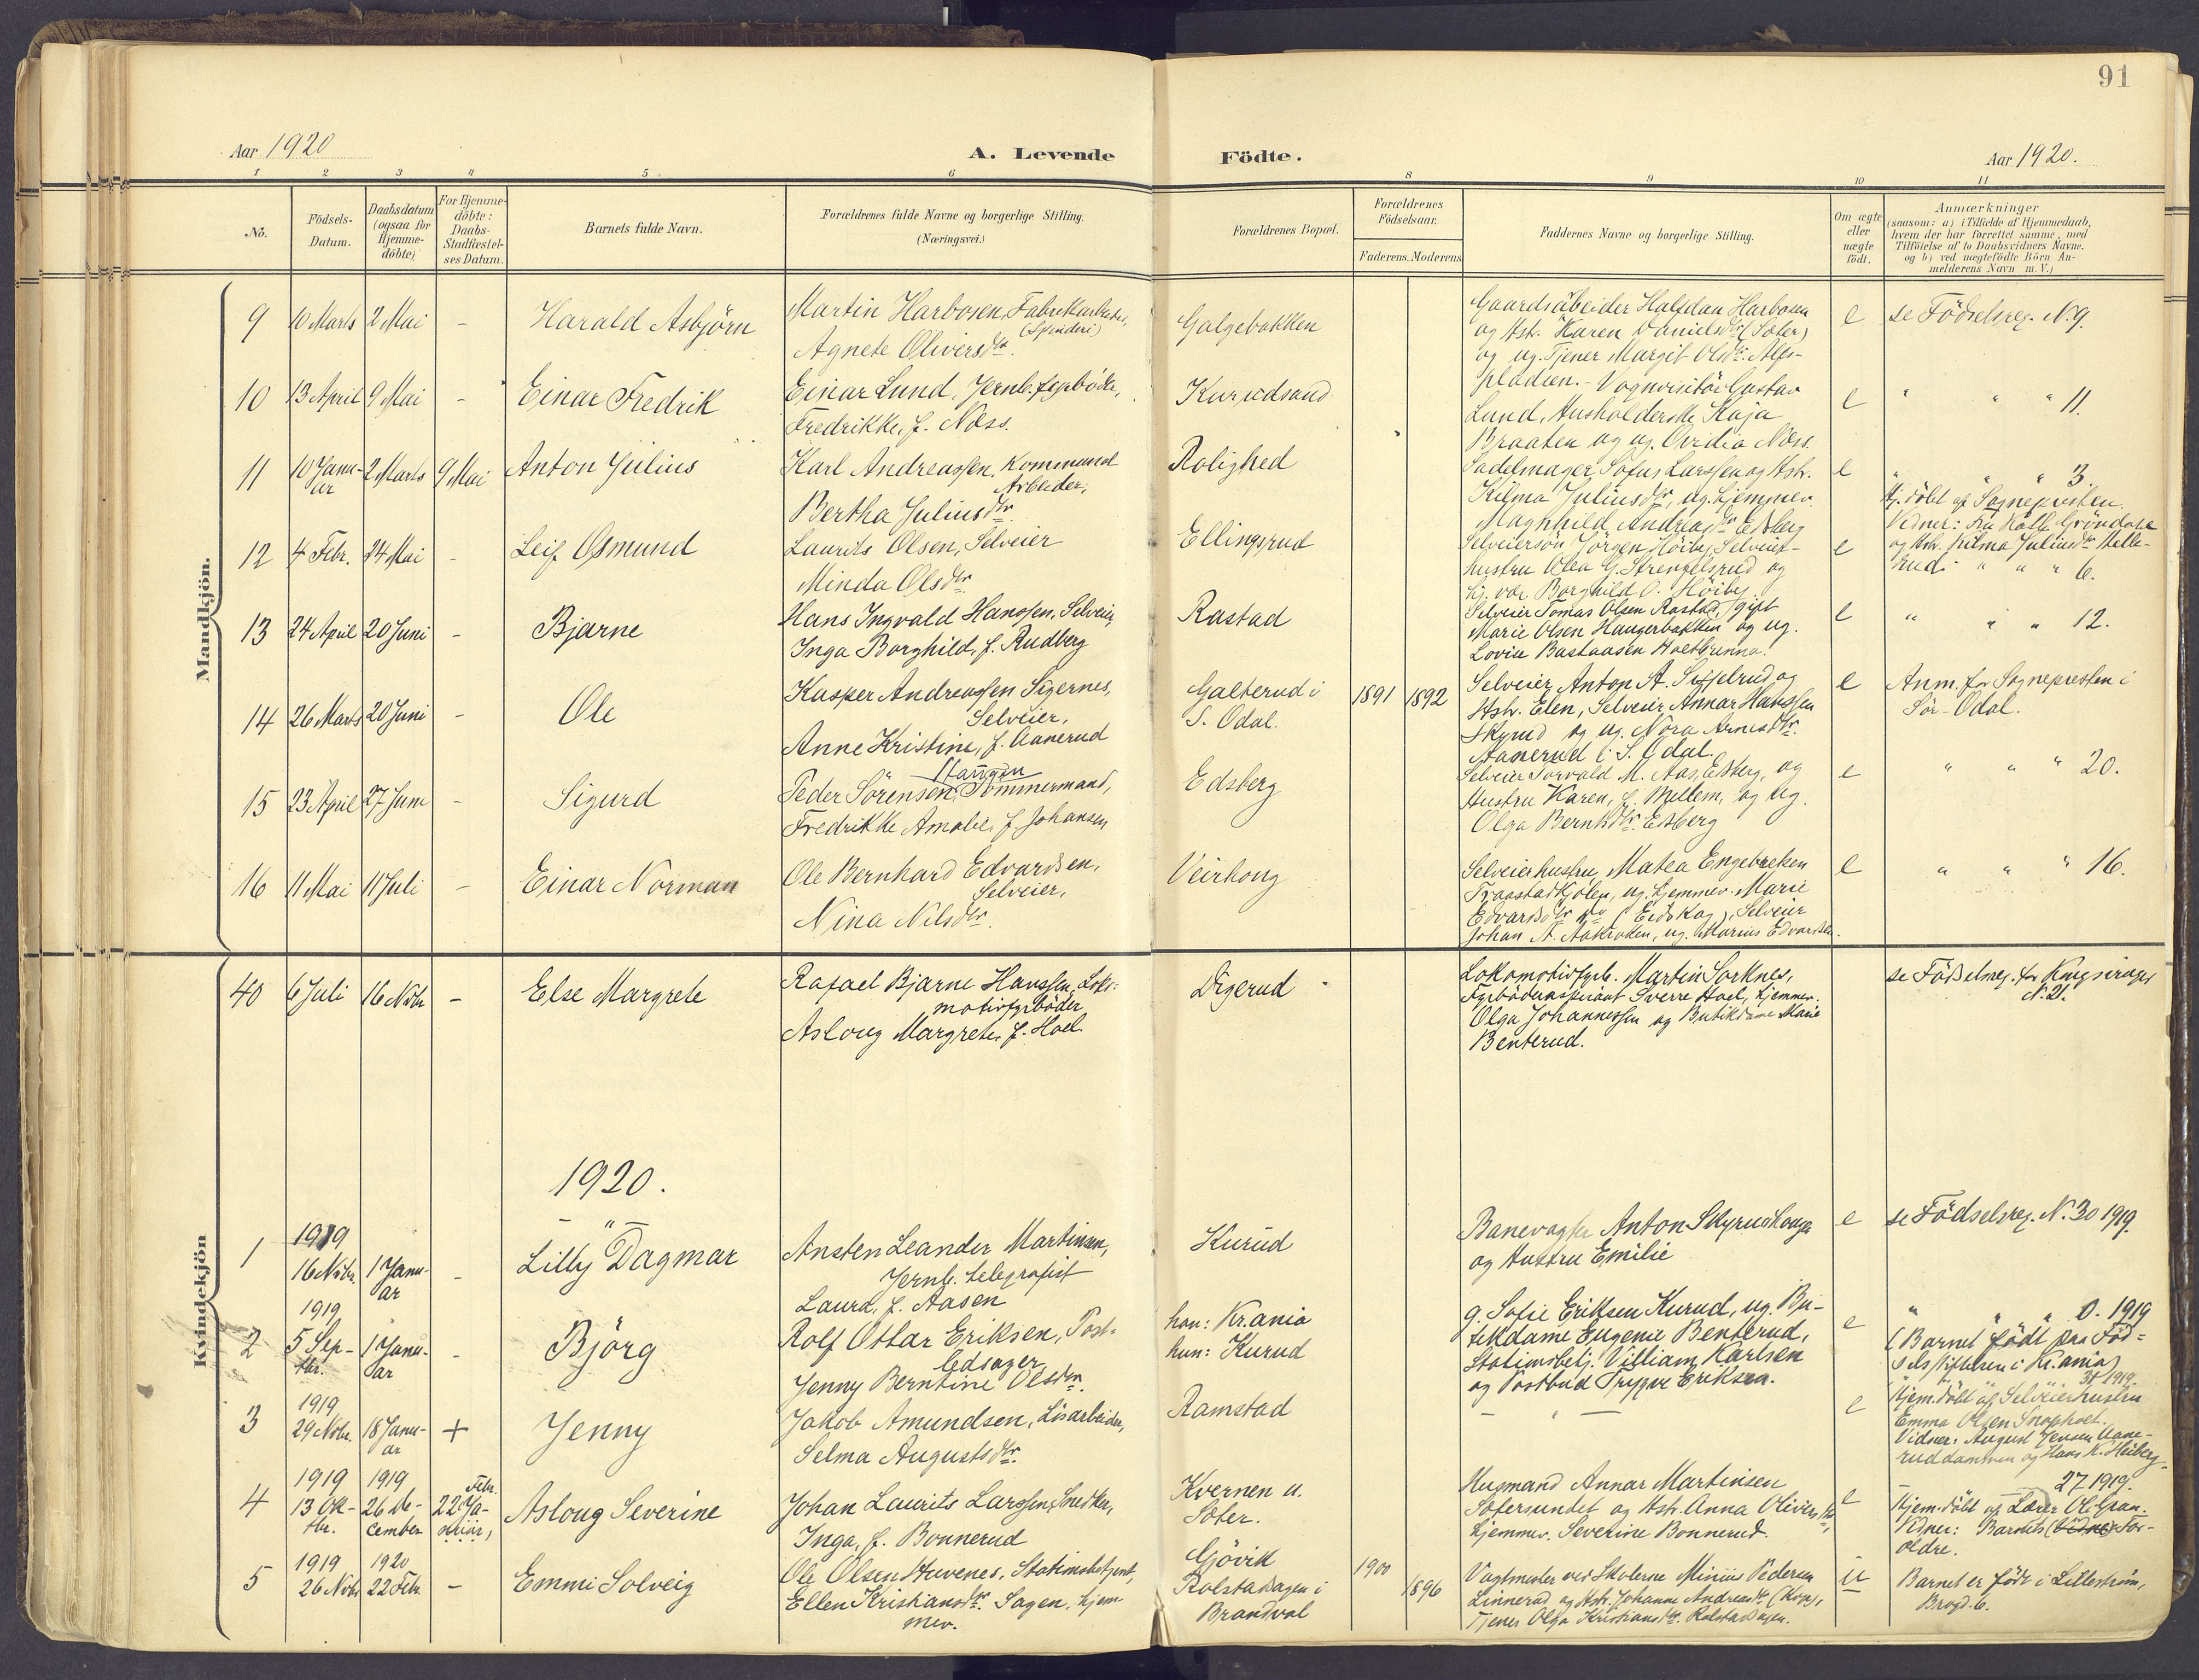 91
Aar 1920
A. Levende
Födte.
Aar 1920.
1 2 3 4 5 6 8 9 10 11
No.
Födsels-
Datum.
Daabsdatum
(ogsaa for
Hjemme-
döbte)
For Hjemme-
döbte:
Daabs-
Stadfæstel-
ses Datum.
Barnets fulde Navn.
Forældrenes fulde Navne og borgerlige Stilling.
(Næringsvei.)
Forældrenes Bopæl.
Forældrenes
Födselsaar.
Faderens. Moderens
Faddernes Navne og borgerlige Stilling.
Om ægte
eller
uægte
födt.
Anmærkninger
(saasom: a) i Tilfælde af Hjemmedaab,
hvem der har forrettet samme, med
Tilföielse af to Daabsvidners Navne.
og b) ved uægtefödte Börn An-
melderens Navn m. V.)
Mandkjön.
9 10 Marts 2 Mai - Harald Asbjörn
Martin Harbosen, Fabrikarbeider,
(Spinderi)
Agnete Oliversdtr.
Galgebakken
Gaardsabeider Halfdan Harbosen
og Hstr. Karen Danielsdtr (Soter)
og ug. Tjener Margit Olsdtr. Alfs-
pladsen.
e
se Födselsreg. N. 9.
10 13 April 9 Mai - Einar Fredrik
Einar Lund, Jernb. fyrböder,
Fredrikke, f. Næss.
Kurudsand
- Vognvisitör Gustav
Lund, Husholderske Kaja
Braaten og ug. Ovidia Næss.
e
" " " 11.
11 10 Janu-
ar
2 Marts 9 Mai Anton Julius
Karl Andreassen, Kommund
Arbeider,
Bertha Juliusdtr.
Rolighed
Sadelmager Sofus Larssen og Hstr.
Hilma Juliusdtr, ug. hjemmev.
Magnhild Andreasdtr Edsberg
e
" " " 3.
Hj. döbt af Sognepresten.
Vidner: Fru Kath. Gröndahl
og Hstr. Hilma Juliusdtr Melle-
rud.
12 4 Febr. 24 Mai - Leif Osmund
Laurits Olsen, Selveier
Minda Olsdtr
Ellingsrud
Selveiersön Jörgen Höiby, Selveier-
hustru Olea G. Strengelsrud og
hj. vær. Borghild O. Höiby.
e
" " " 6.
13 24 April 20 Juni - Bjarne
Hans Ingvald Hanssen, Selveier,
Inga Borghild, f. Rudberg
Rastad
Selveier Tomas Olsen Rastad, gift
Marie Olsen Haugerbakken og ug.
Lovise Bastaasen Holtbrenna.
e
" " " 12.
14 26 Marts 20 Juni - Ole
Kasper Andreassen Sigernes,
Selveier,
Anne Kristine, f. Aanerud
Galterud i
S. Odal.
1891 1892
Selveier Anton A. Siffelrud og
Hstr. Elen, Selveier Annar Hanssen
Skyrud og ug. Nora Arnesdtr.
Aanerud i S. Odal.
e
Anm. for Sognepresten i
Sör-Odal.
15 23 April 27 Juni - Sigurd
Haugen
Peder Sörensen, Tömmermand,
Fredrikke Amalie, f. Johansen
Edsberg
Selveier Torvald M. Aas, Edsberg, og
Hustru Karen, f. Mellem, og ug.
Olga Berntsdtr. Edsberg
e
" " " 20.
16 11 Mai 11 Juli - Einar Norman
Ole Bernhard Edvardsen,
Selveier,
Nina Nilsdtr.
Veirhoug
Selveierhustru Matea Engebretsen
Traastadkjölen, ug. hjemmev. Marie
Edvardsdtr (Eidskog), Selveier
Johan A. Aakroken, ug. Marius Edvardsen.
e
" " " 16.
40 6 Juli 16 Novbr - Else Margrete
Rafael Bjarne Hanssen, Loko-
motivfyrböder
Asloug Margrete, f. Hoel.
Digerud
Lokomotivfyrb. Martin Sorknes,
Fyrböderaspirant Sverre Hoel, hjemmev.
Olga Johannessen og Butikdame Marie
Benterud.
se Födselsreg. for Kongsvinger
N. 21.
1920.
Kvindekjön
1 1919
16 Novbr.
1 Janu-
ar
- Lilly Dagmar
Ansten Leander Martinsen,
Jernb. telegrafist
Laura, f. Aasen
Kurud
Banevogter Anton Skyrudshaugen
og Hustru Emilie
e
se Födselsreg. N. 30 1919.
2 1919
5 Sep-
tbr.
1 Janu-
ar
- Björg
Rolf Ottar Eriksen, Post-
ledsager
Jenny Berntine Olsdtr.
han: Kr.ania
hun: Kurud
g. Sofie Eriksen Kurud, ug. Bu-
tikdame Eugenie Benterud,
Stationsbetj. Villiam Karlsen
og Postbud Trygve Eriksen.
e
" " " 0. 1919
(Barnet född paa Föd-
selsstiftelsen i Kr.ania)
3 1919
29 Novbr.
18 Janu-
ar
+ Jenny
Jakob Amundsen, Lösarbeider,
Selma Augustsdtr.
Ramstad
- " -
e
" 31 1919.
Hjem. döbt af Selveierhustru
Emma Olsen Snapholt.
Vidner: August Jensen Aane-
ruddammen og Hans K. Heiberg.
4 1919
13 Ok-
tbr.
1919
26 De-
cember
Febr.
22 Ja-
nuar,
Asloug Severine
Johan Laurits Larssen, Snedker,
Inga, f. Bonnerud
Kvernen u.
Soter.
Husmand Annar Martinsen
Sotersundet og Hstr. Anna Oliversdtr,
hjemmev. Severine Bonnerud.
e
27 1919.
Hjem. döbt af Lærer Ole Gran.
Vidner: Barnets (Vidne) For-
ældre.
5 1919
26 Novbr
1920
22 Febr.
- Emmi Solveig
Ole Olsen Stuvenes, Stationsbetjent,
Ellen Kristiansdtr. Sagen, hjem
mev.
Gjövik
Rolstadsagen i
Brandval
1900
1896
Vagtmester ved Skolerne Minius Pedersen
Linnerud og Hstr. Johanne Andreasdtr (Kvgr.),
Tjener Olga Kristiansdtr. Rolstadsagen.
u
Barnet er födt i Lilleström,
Brogd. 6.